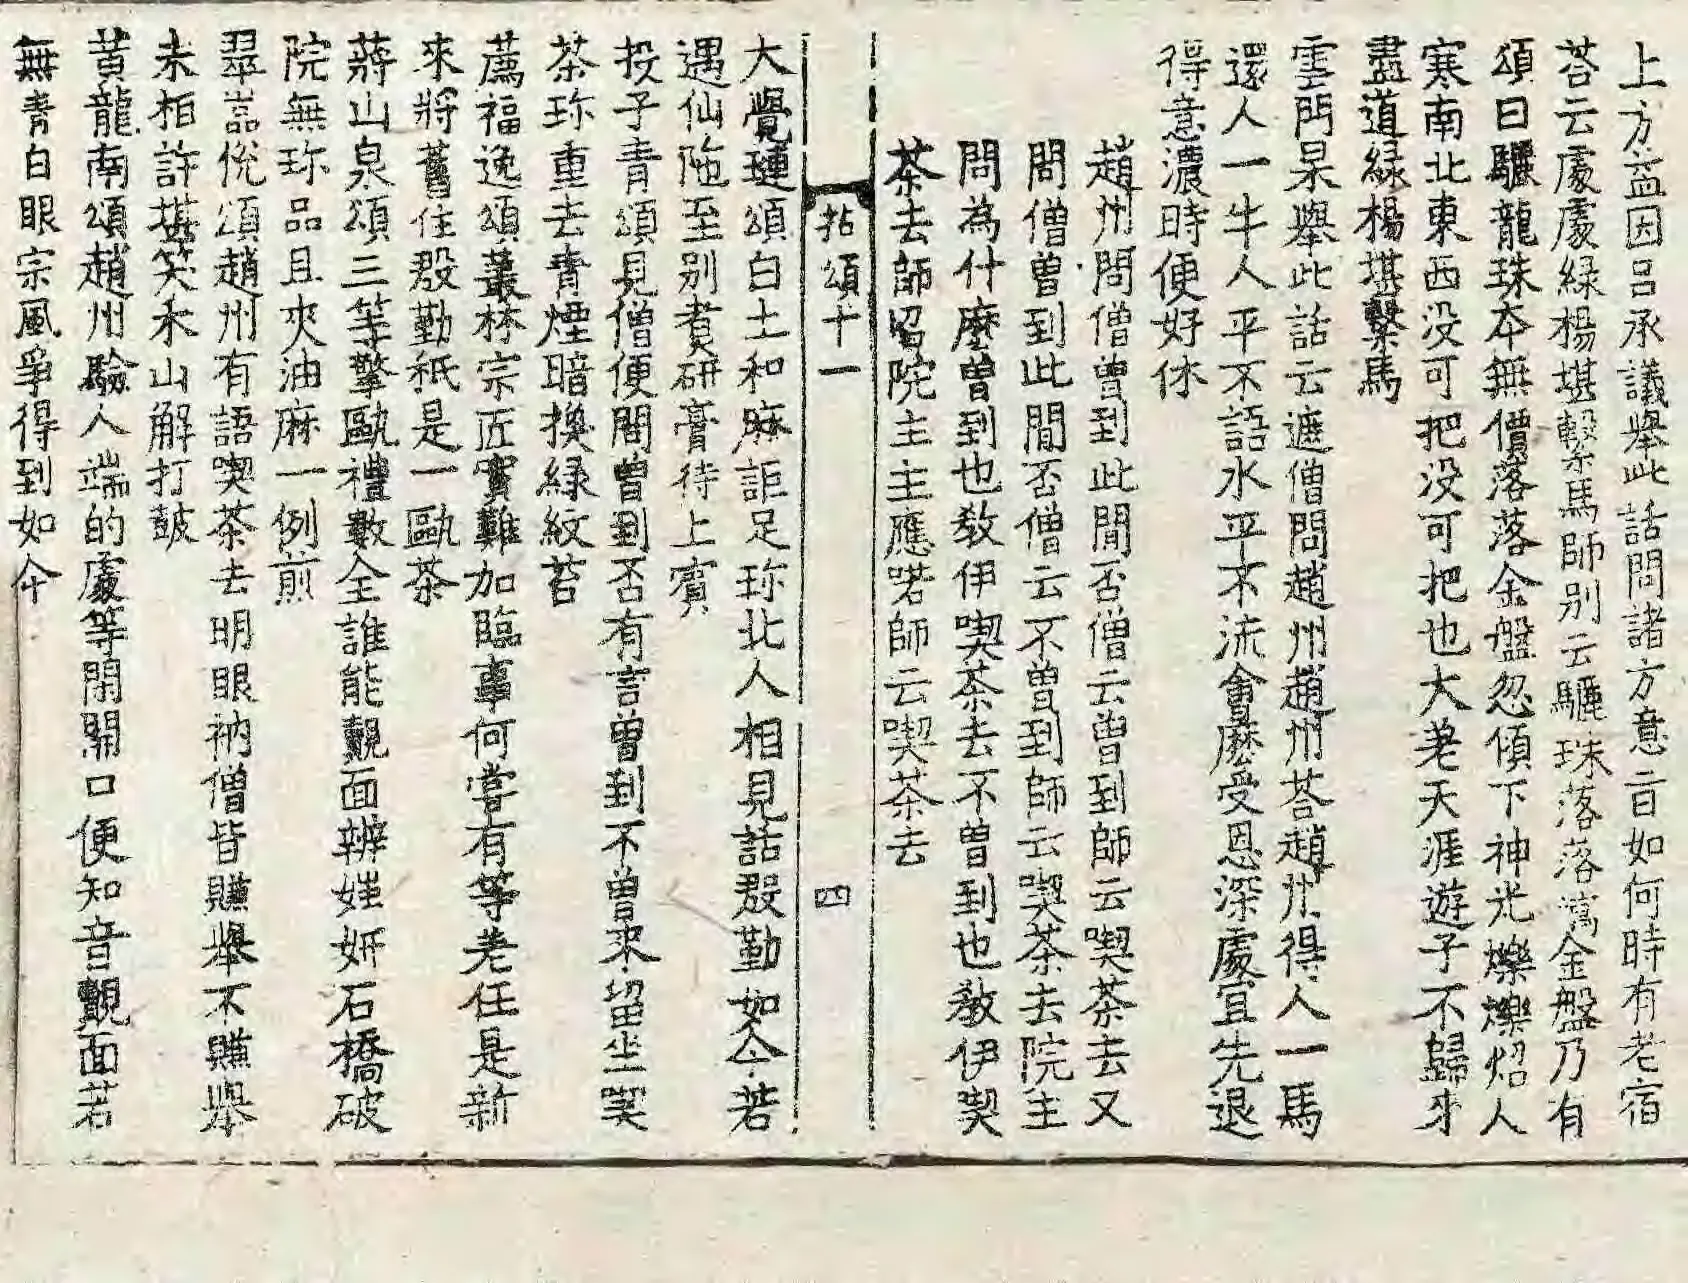 上方益因呂承議舉此話問諸方意旨如何時有老宿
荅云處處綠楊堪繫馬師別云驪珠落落瀉金盤乃有
頌曰驪龍珠本無價落落金盤忽傾下神光爍爍炤人
寒南北東西没可把没可把也大差天涯遊子不歸來
盡道綠楊堪繫馬
雲門杲舉此話云遮僧問趙州趙州荅趙州得人一馬
還人一牛人平不語水平不流會麽受恩深處宜先退
得意濃時便好休
趙州問僧曾到此間否僧云曾到師云喫茶去又
問僧曾到此間否僧云不曾到師云喫茶去院主
問為什麼曾到也教伊喫茶去不曾到也教伊喫
茶去師召院主主應喏師云喫茶去
拈頌十一 四
大覺璉頌白土和麻詎足珎北人相見話殷勤如今若
遇仙陁至別煑研膏待上賓
投子青頌見僧便問曾到否有言曾到不曾來留坐喫
茶珎重去青煙暗換綠紋苔
薦福逸頌叢林宗匠實難加臨事何甞有等差任是新
來將舊住殷勤秖是一甌茶
蔣山泉頌三等擎甌禮數全誰能覿面辨媸妍石橋破
院無珎品且夾油麻一例煎
翠嵓悅頌趙州有語喫茶去明眼衲僧皆賺舉不賺舉
未相許堪笑禾山解打皷
黄龍南頌趙州驗人端的處等閑開口便知音覿面若
無青白眼宗風爭得到如今